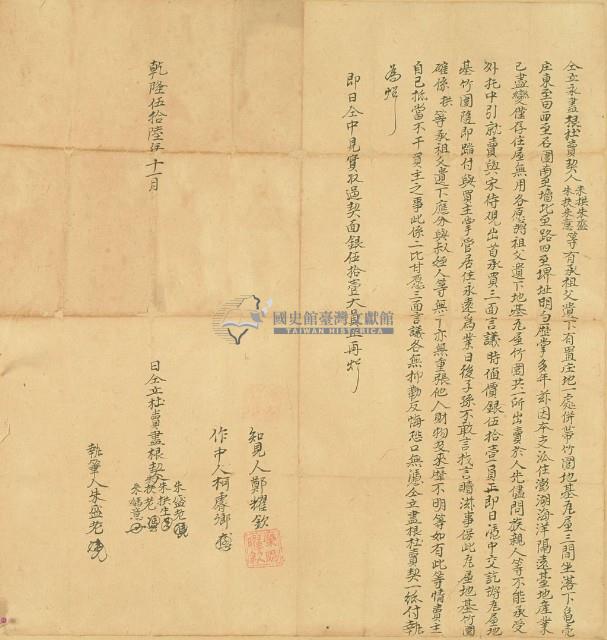 仝立永盡根杜賣契人朱拱朱盛朱扶朱意等有承祖父遺下有置庄地一處併帶竹圍地基瓦屋三間坐落下
庄東至田西至石圍南至墻北至路四至埤址明白歷掌多年茲因本之洽住澎湖海洋隔遠基地產業
已盡變僅存住屋無用各愿將祖父遺下地基瓦屋竹圍共一所出賣於人先儘問族親人等不能承受
外托中引就賣與宋待觀出首承買三面言議時值價銀伍拾壹員正即日憑中交訖將瓦屋地
基竹圍隨即踏付與買主掌管居住永遠為業日後子孫不敢言找言贖滋事保此瓦屋地基竹圍
確係拱等承祖父遺下應分與叔姪人等無干亦無重張他人財物及來歷不明等如有此等情賣主
自己抵當不干買主之事此係二比甘愿三面言議各無抑勒反悔恐口無憑仝立盡根杜賣契一紙付執
為炤
即日仝中見實收過契面銀伍拾壹大員正再炤
知見人鄭耀欽
作中人柯
乾隆伍拾陸年十一月 日仝立杜賣盡根契 朱盛老 朱拱生 朱扶老 朱 意
執筆人朱盛老
國史館臺灣文獻館
TAIWAN HISTORICA